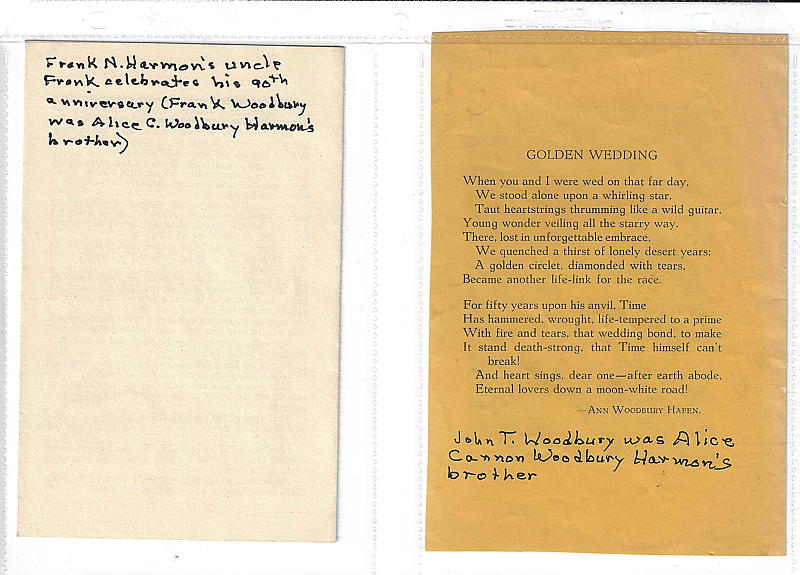 Frank N. Harmon's uncle
Frank celebrates his 90th
anniversary (Frank Woodbury
was Alice C. Woodbury Harmon's
brother)
GOLDEN WEDDING
When you and I were wed on that far day,
We stood alone upon a whirling star,
Taut heartstrings thrumming like a wild guitar,
Young wonder veiling all the starry way.
There, lost in unforgettable embrace,
We quenched a thirst of lonely desert years;
A golden circlet, diamonded with tears,
Became another life-link for the race.
For fifty years upon his anvil, Time
Has hammered, wrought, life-tempered to a prime
With fire and tears, that wedding bond, to make
It stand death-strong, that Time himself can't
break!
And heart sings, dear one—after earth abode,
Eternal lovers down a moon-white road!
—Ann Woodbury Hafen.
John T. Woodbury was Alice
Cannon Woodbury Harmon's
brother